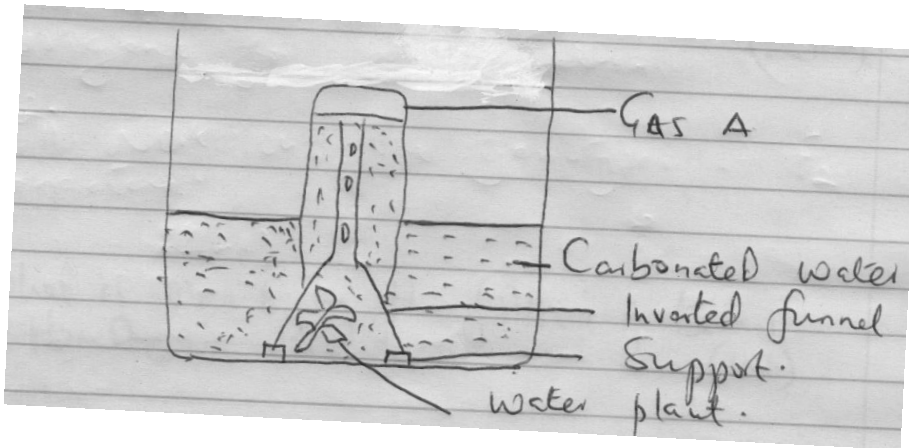 GAS A
Carbonated water
Inverted funnel
Support.
water plant.